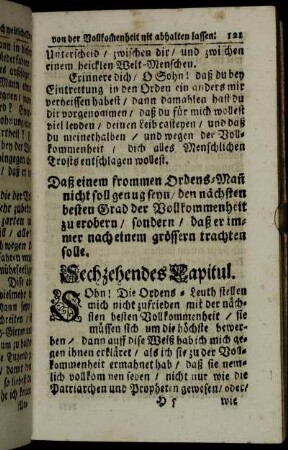 von der Vollkom̃enheit nit abhalten lassen: 121
Unterscheid / zwischen dir / und zwischen
einem heicklen Welt-Menschen.
Erinnere dich / O Sohn! daß du bey
Eintrettung in den Orden ein anders mir
verheissen habest / dann damahlen hast du
dir vorgenommen / daß du für mich wollest
viel leyden / deinen Leib casteyen / und daß
du meinethalben / und wegen der Voll-
kommenheit / dich alles Menschlichen
Trosts entschlagen wollest.
Daß einem frommen Ordens-Mañ
nicht soll genug seyn / den nächsten
besten Grad der Vollkommenheit
zu erobern / sondern / daß er im-
mer nach einem grössern trachten
solle.
Sechzehendes Capitul.
SOhn! Die Ordens-Leuth stellen
mich nicht zufrieden mit der näch-
sten besten Vollkommenheit / sie
müssen sich um die höchste bewer-
ben / dann auff dise Weiß hab ich mich ge-
gen ihnen erkläret / als ich sie zu der Voll-
kommenheit ermahnet hab / daß sie nem-
lich vollkommen seyen / nicht nur wie die
Patriarchen und Propheten gewesen / oder /
H 5 wie